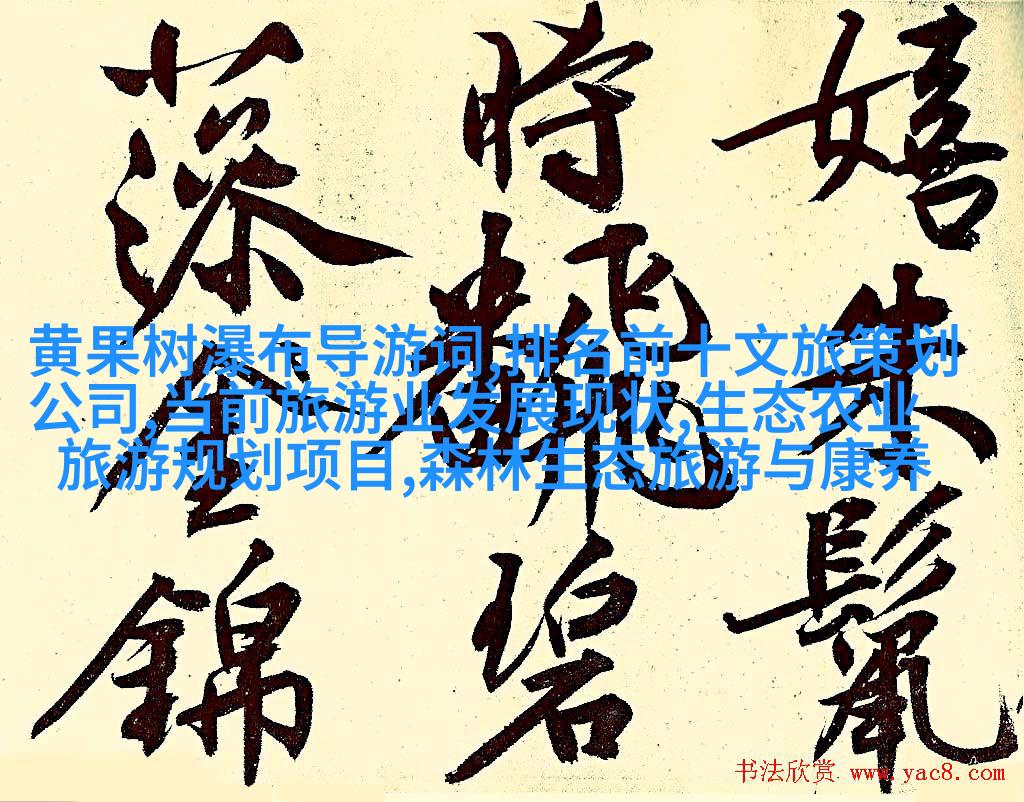 嬉朱鬣
時飜碧
藻全錦
黄果树瀑布导游词,排名前十文旅策划
公司,当前旅游业发展现状,生态农业
旅游规划项目,森林生态旅游与康养
书法欣赏 www.yac8.com